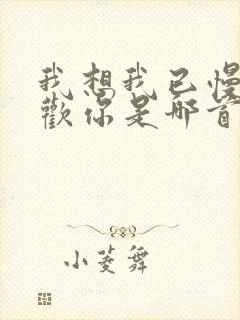 我想我已慢
歡你是哪首
小菱舞